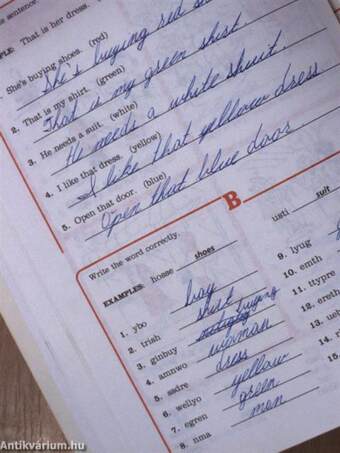 sentence.
That is her dress.
She's buying shoes. (red)
She's buying red
2. That is my shirt. (green)
That is my green shirt.
3. He needs a suit. (white)
He needs a white shuit.
4. I like that dress. (yellow)
I like that yellow dress
5. Open that door. (blue)
Open that blue door
B
Write the word correctly.
EXAMPLES: hosse shoes usti suit
1. ybo boy
2. trish shirt
3. ginbuy buying
4. amnwo woman
5. ssdre dress
6. wellyo yellow
7. egren green
8. nma
9. lyug
10. emth
11. ttypre
12. ereth
13.
14.
15.
Antikvárium.hu